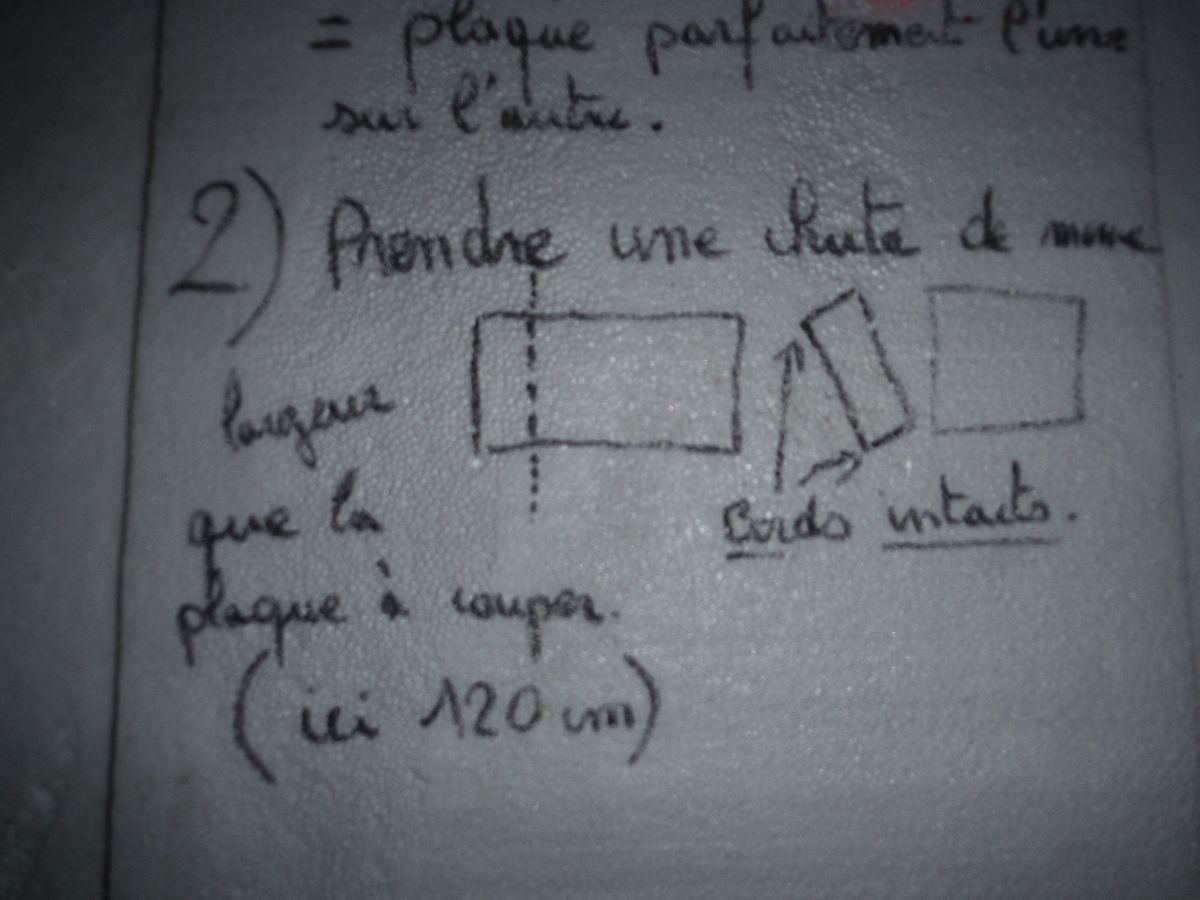 = plaque parfaitement l'une
sur l'autre.
2) Prendre une chute de meme
largeur
que la
plaque à couper.
(ici 120 cm)
Bords intacts.